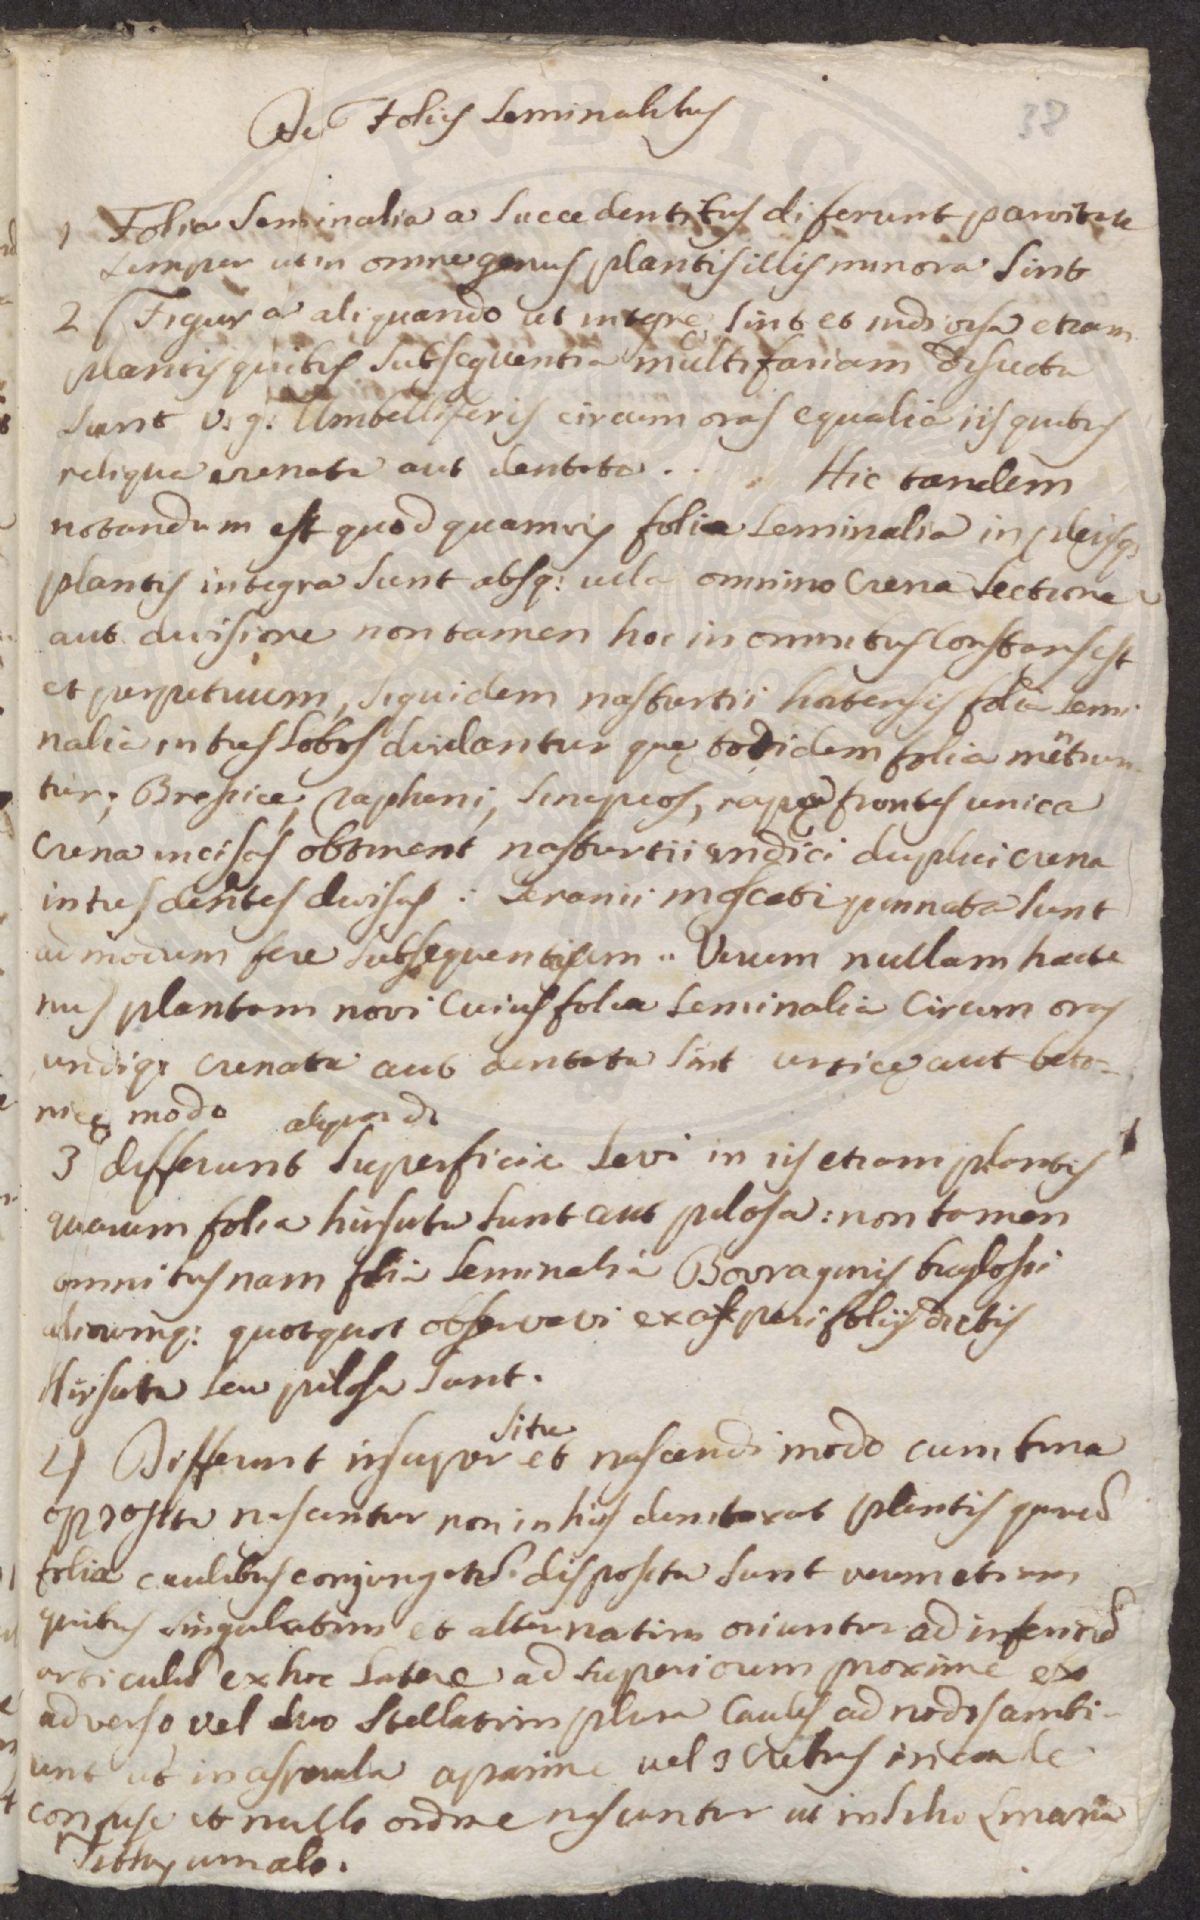 De Foliis Seminalibus
38
1 Folia Seminalia a Succedentibus diferunt parvitate
semper ut in omne genus plantis illis minora Sint
2 Figura aliquando ut integre Sint et indivisa etiam
plantis quibus Subsequentia multifariam disecta
Sunt v. g: Umbelliferis circum oras equalia iis quibus
reliqua crenata aut dentata . . . Hic tandem
notandum est quod quamvis folia Seminalia in plerisq:
plantis integra Sunt absq: ulla omnino Crena Sectione
aut divisione non tamen hoc in omnibus Constans est
et perpetuum, siquidem nasturtii hortensis folia Semi
nalia in tres Lobos dividantur quę totidem folia mẽtiun
tur; Brassice, raphani, Sinapeos, rapę frontes unica
Crena incisas obtinent nasturtii indici duplici crena
in tres dentes divisas : Geranii moscati pinnata Sunt
ad modum fere Subsequentium .. Verum nullam hacte
nus plantam novi Cuius folia Seminalia Circum oras
undiq: crenata aut dentata Sint urticę aut beto=
nicę modo
aliquando
3 differunt Superficie Levi in iis etiam plantis
quarum folia hirsuta Sunt aut pilosa : non tamen
omnibus nam folia Seminalia Borraginis buglossi
aliorumq: quotquot observavi ex asperifoliis dictis
Hirsuta Seu pilosa Sunt.
Situ
4 Differunt insuper et nascendi modo cum bina
opposita nascantur non in his quarũ
folia caulibus conjugatĩ disposita Sunt verum etiam
quibus singulatim et alternatim oriuntur ad inferiorẽ
articulũ ex hoc Latere ad Superiorem proxime ex
adverso vel duo Stellatim plura Caules ad nodos ambi-
unt ut in asperula aparine vel crebris in caule
confuse et nullo ordine nascuntur ut in Linaria
Tithymalo.